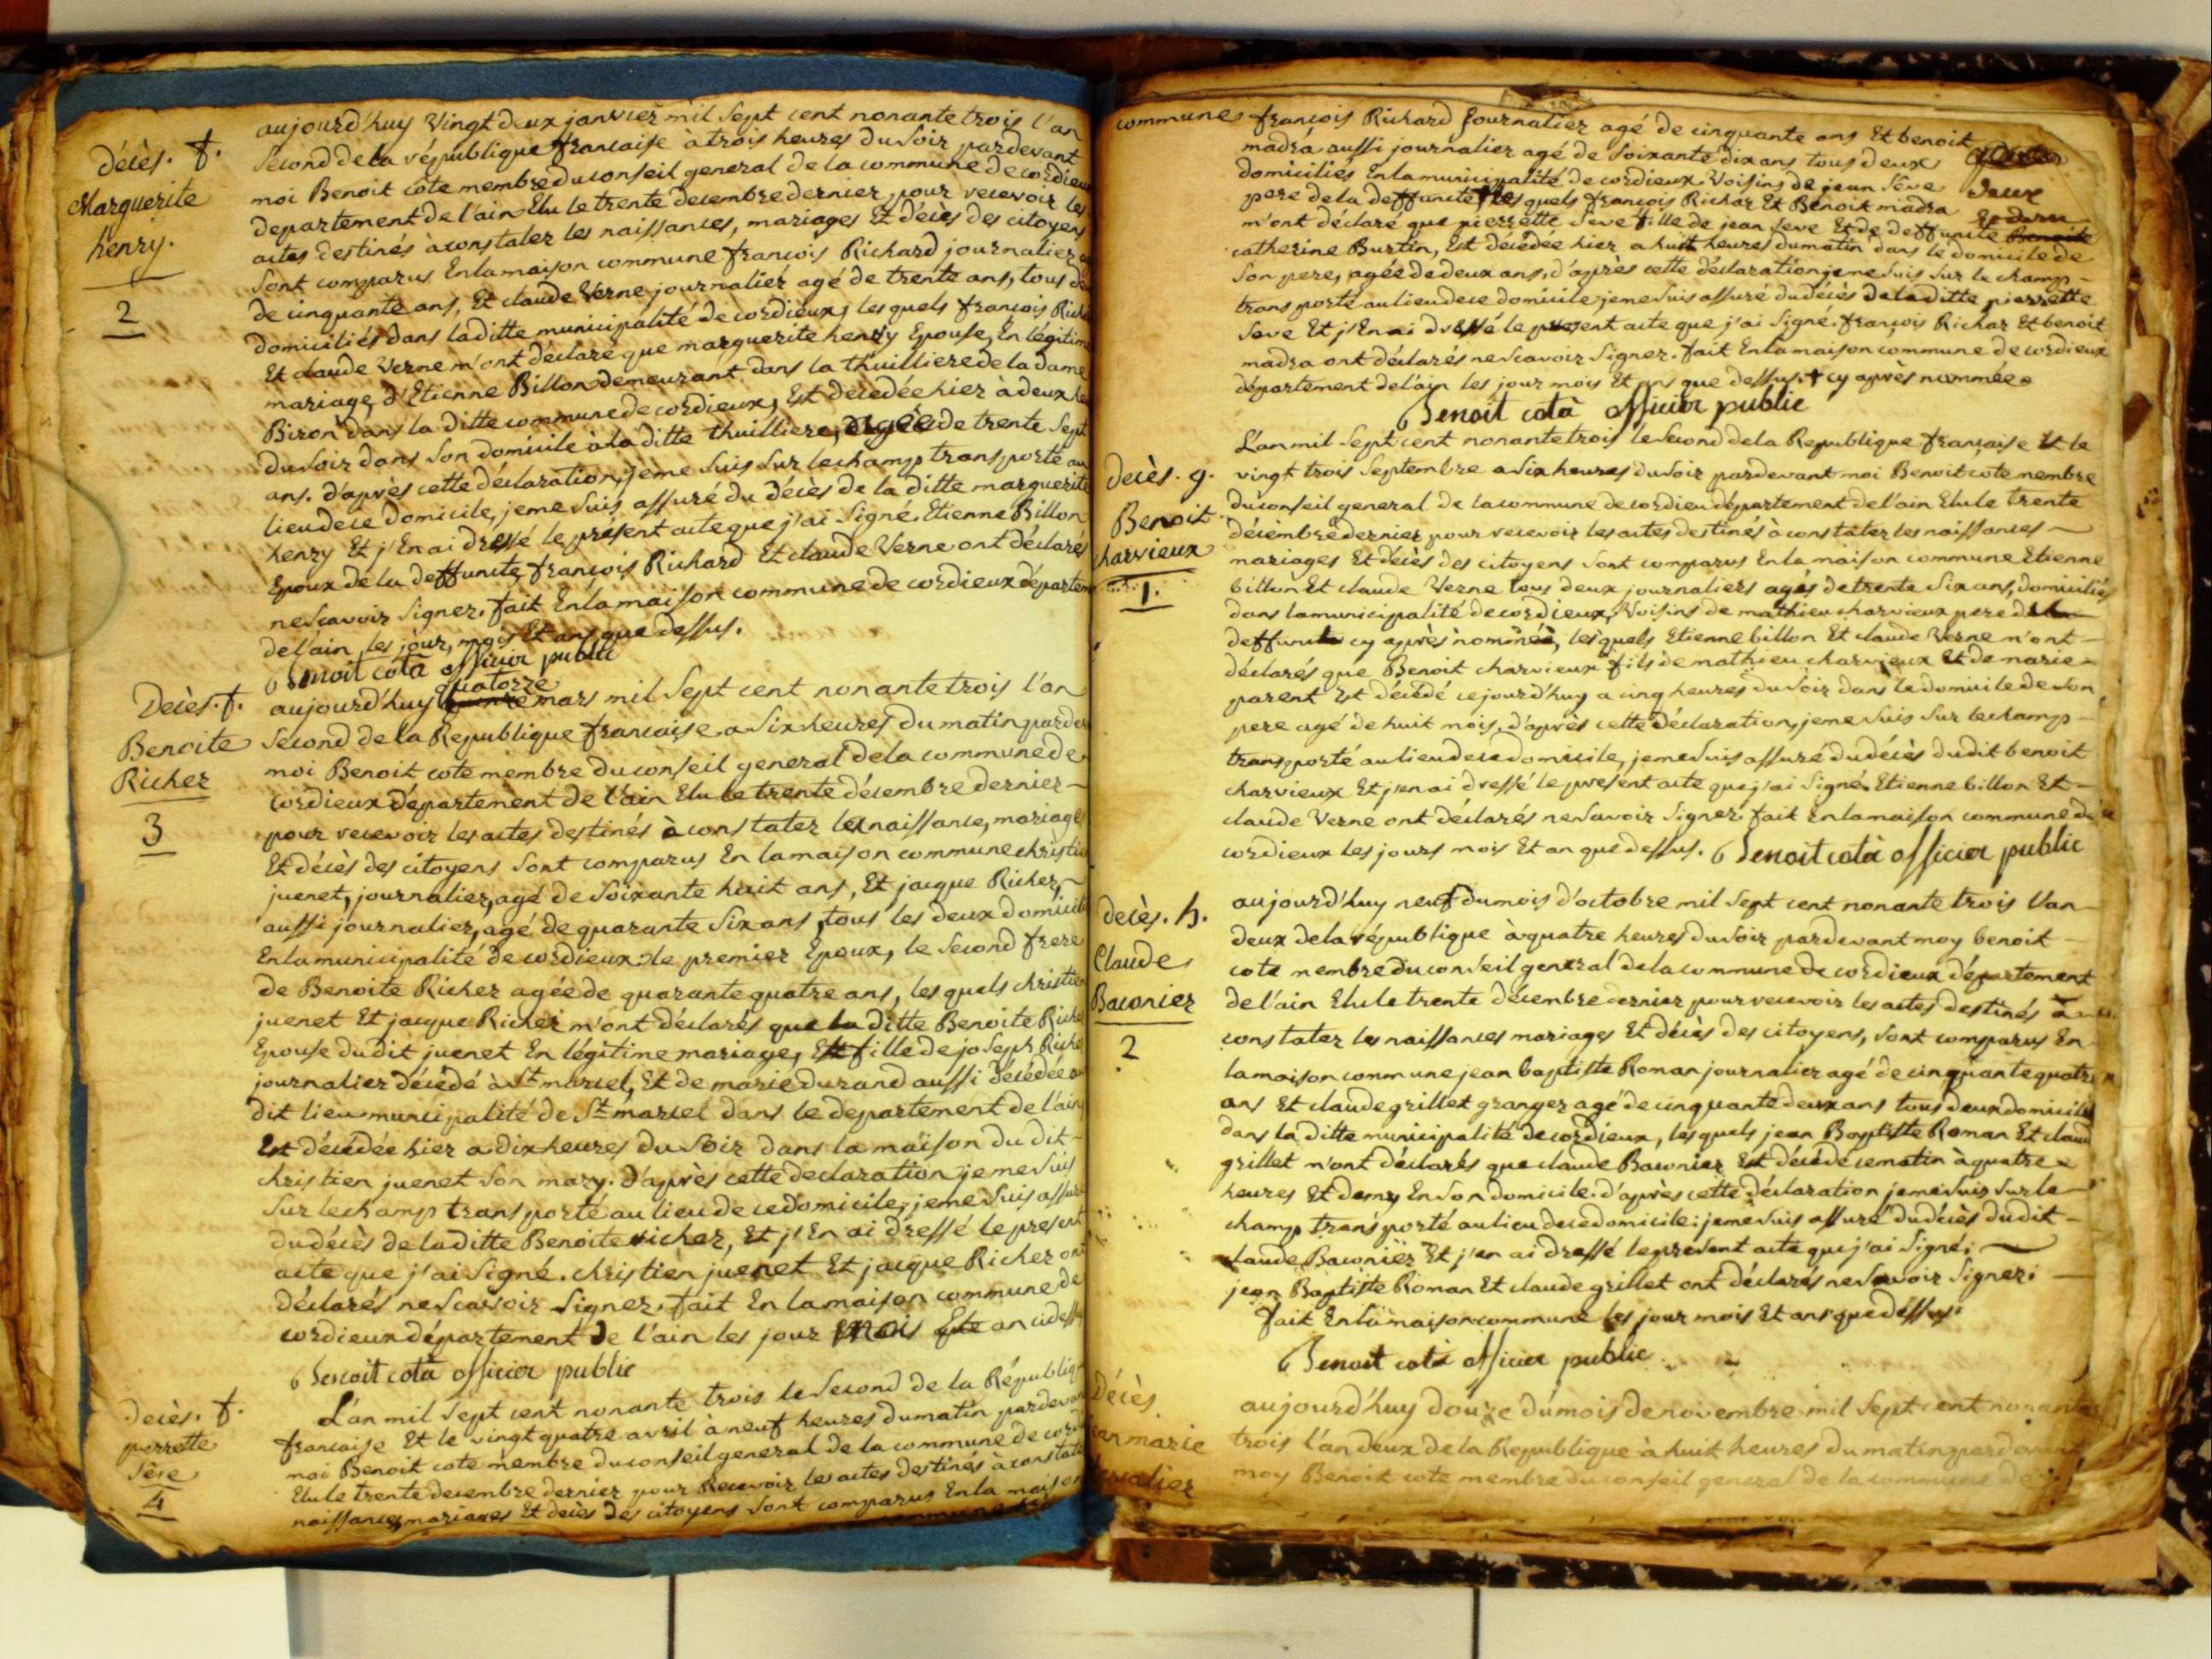 décès. f.
Marguerite
henry.
2
aujourd'huy Vingt deux janvier mil Sept cent nonante trois l'an
Second de la république francaise à trois heures du Soir pardevant
moi Benoit cote membre du conseil general de la commune de cordieux
departement de l'ain Elu le trente decembre dernier pour recevoir les
actes destinés à constater les naissances, mariages Et décès des citoyens
Sont comparus En la maison commune francois Richard journalier
de cinquante ans, Et claude Verne journalier agé de trente ans, tous
domiciliés dans la ditte municipalité de cordieux, les quels francois
Et claude Verne m'ont déclaré que marguerite henry Epouse, En légitime
mariage, d'Etienne Billon demeurant dans la thuilliere de la dame
Biron dans la ditte commune de cordieux, Est decedée hier à deux
du soir dans Son domicile à la ditte thuilliere, agée de trente Sept
ans. d'après cette déclaration, je me Suis Sur le champ transporté au
lieu de ce domicile, je me Suis assuré du décès de la ditte marguerite
henry Et j'En ai dressé le présent acte que j'ai Signé. Etienne Billon
Epoux de la deffunte, françois Richard Et claude Verne ont déclarés
ne scavoir Signer. fait En la maison commune de cordieux
de l'ain les jour, mois Et ans que dessus.
Benoit cota officier public
Decès. f.
Benoite
Richer
3
quatorze
aujourd'huy mars mil Sept cent nonante trois l'an
Second de la Republique francaise a Six heures du matin
moi Benoit cote membre du conseil general de la commune de
cordieux département de l'ain Elu le trente décembre dernier
pour recevoir les actes destinés à constater les naissance, mariages
Et décès des citoyens Sont comparus En la maison commune
juenet, journalier, agé de Soixante huit ans, Et jacque Richer,
aussi journalier, agé de quarante Six ans, tous les deux
En la municipalité de cordieux: le premier Epoux, le Second frere
de Benoite Richer agée de quarante quatre ans, les quels christien
juenet Et jacque Richer m'ont déclarés que la ditte Benoite
Epouse du dit juenet En légitime mariage, Et fille de joseph
journalier décédé à St marcel, Et de marie durand aussi décédée
dit lieu municipalité de St marcel dans le departement de l'ain
Est décédée hier a dix heures du Soir dans la maison du dit
christien juenet Son mary. d'après cette declaration je me Suis
Sur le champ transporté au lieu de ce domicile, je me Suis assuré
du décès de la ditte Benoite richer, Et j'En ai dressé le present
acte que j'ai Signé. christien juenet Et jacque Richer ont
déclarés ne Scavoir Signer. fait En la maison commune de
cordieux département de l'ain les jour mois an
Benoit cota officier public
Decès. f.
pierrette
Sève
4
L'an mil Sept cent nonante trois le Second de la
francaise Et le vingt quatre avril à neuf heures du matin
moi Benoit cote membre du conseil general de la commune de
Elu le trente decembre dernier pour Recevoir les actes destinés à
naissances, mariages Et décès des citoyens Sont comparus En la maison
commune francois Richard journalier agé de cinquante ans Et benoit
madra aussi journalier agé de Soixante dix ans tous deux
domiciliés En la municipalité de cordieux Voisins de jean Seve
deux
pere de la deffunte les quels françois Richar Et Benoit madra
m'ont déclaré que pierrette Seve fille de jean Seve Et de deffunte
catherine Burtin, Est décédée hier a huit heures du matin dans le domicile de
Son pere, agée de deux ans, d'après cette déclaration je me Suis Sur le champ
transporté au lieu de ce domicile, je me Suis assuré du décès de la ditte pierrette
Seve Et j'En ai dressé le present acte que j'ai Signé. françois Richar Et benoit
madra ont déclarés ne Scavoir Signer. fait En la maison commune de cordieux
département de l'ain les jour mois Et ans que dessus. + cy après nommée
Benoit cotà officier public
Decès. g.
Benoit
charvieux
1.
L'an mil Sept cent nonante trois le Second de la Republique française Et le
vingt trois Septembre a Six heures du Soir pardevant moi Benoit cote membre
du conseil general de la commune de cordieu département de l'ain Elu le trente
décembre dernier pour recevoir les actes destinés à constater les naissances
mariages Et décès des citoyens Sont comparus En la maison commune Etienne
billon Et claude Verne tous deux journaliers agés de trente Six ans, domiciliés
dans la municipalité de cordieux, Voisins de mathieu charvieux pere
deffunt cy après nommé, les quels Etienne billon Et claude Verne m'ont
déclarés que Benoit charvieux fils de mathieu charvieux Et de marie
parent Est décédé ce jourd'huy a cinq heures du Soir dans le domicile de Son
pere agé de huit mois, d'après cette déclaration, je me Suis Sur le champ
transporté au lieu de ce domicile, je me Suis assuré du décès du dit benoit
charvieux Et j'en ai dressé le present acte que j'ai Signé. Etienne billon Et
claude Verne ont déclarés ne Savoir Signer. fait En la maison commune de
cordieux les jours mois Et an que dessus. Benoit cotà officier public
decès. h.
Claude
Baconier
2
aujourd'huy neuf du mois d'octobre mil Sept cent nonante trois l'an
deux de la république à quatre heures du Soir pardevant moy benoit
cote membre du conseil general de la commune de cordieux département
de l'ain Elu le trente décembre dernier pour recevoir les actes destinés à
constater les naissances mariages Et décès des citoyens, Sont comparus En
la maison commune jean baptiste Roman journalier agé de cinquante quatre
ans Et claude grillet granger agé de cinquante deux ans tous deux domiciliés
dans la ditte municipalité de cordieux, les quels jean Baptiste Roman Et claud
grillet m'ont déclarés que claude Baconier Est décédé ce matin à quatre
heures Et demy En Son domicile. d'après cette déclaration je me Suis Sur le
champ transporté au lieu de ce domicile: je me Suis assuré du décès du dit
claude Baconier Et j'en ai dressé le present acte que j'ai Signé;
jean Baptiste Roman Et claude grillet ont déclarés ne Savoir Signer:
fait En la maison commune les jour mois Et ans que dessus:
Benoit cota officier public
Décès
jean marie
aujourd'huy douze du mois de novembre mil Sept cent nonante
trois l'an deux de la Republique à huit heures du matin pardevant
moy Benoit cote membre du conseil general de la commune de